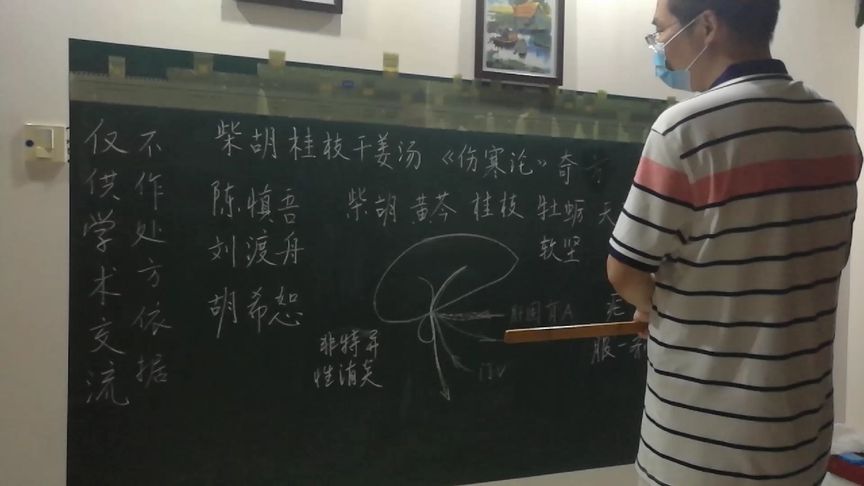 仅供学术交流
不作处方依据
柴胡桂枝干姜汤《伤寒论》奇方
陈慎吾
柴胡 黄芩 桂枝 牡蛎 天
软坚
刘渡舟
胡希恕
非特异
性消炎
服一